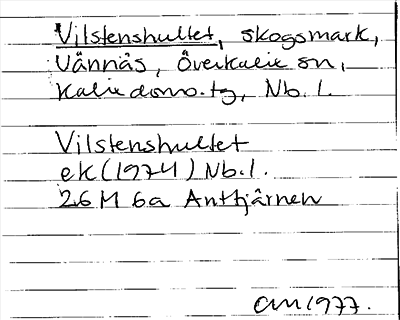 Vilstenshultet, skogsmark,
Vännäs, Överkalix sn,
Kalix doms.tg, Nb. l.
Vilstenshultet
ek (1974) Nb. l.
26 M 6a Anttjärnen
am 1977.